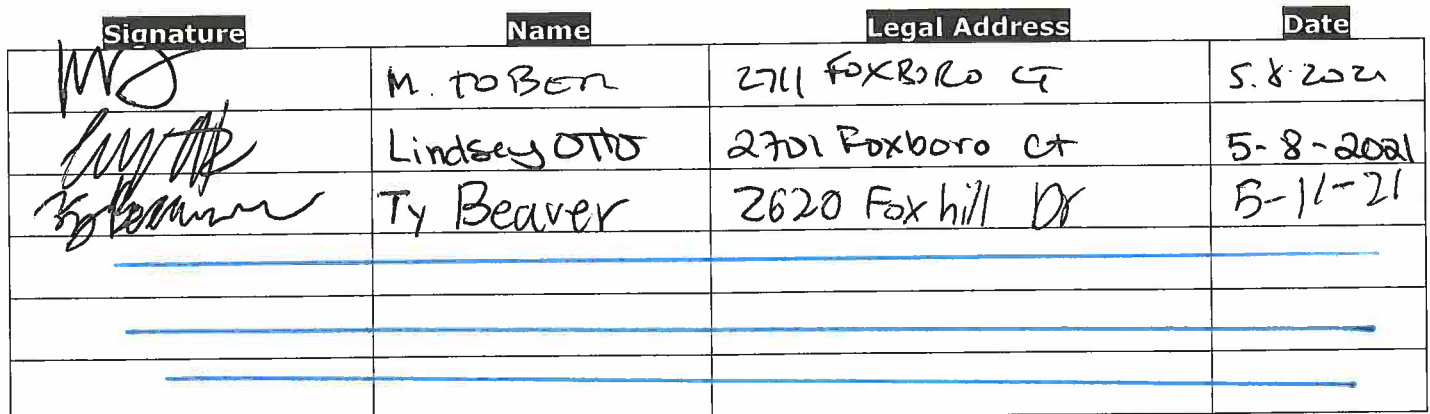 Signature Name Legal Address Date
M. TOBEN 2711 FOXBORO CT 5.8.2021
Lindsey Otto 2701 Foxboro Ct 5-8-2021
Ty Beaver 2620 Foxhill Dr 5-11-21